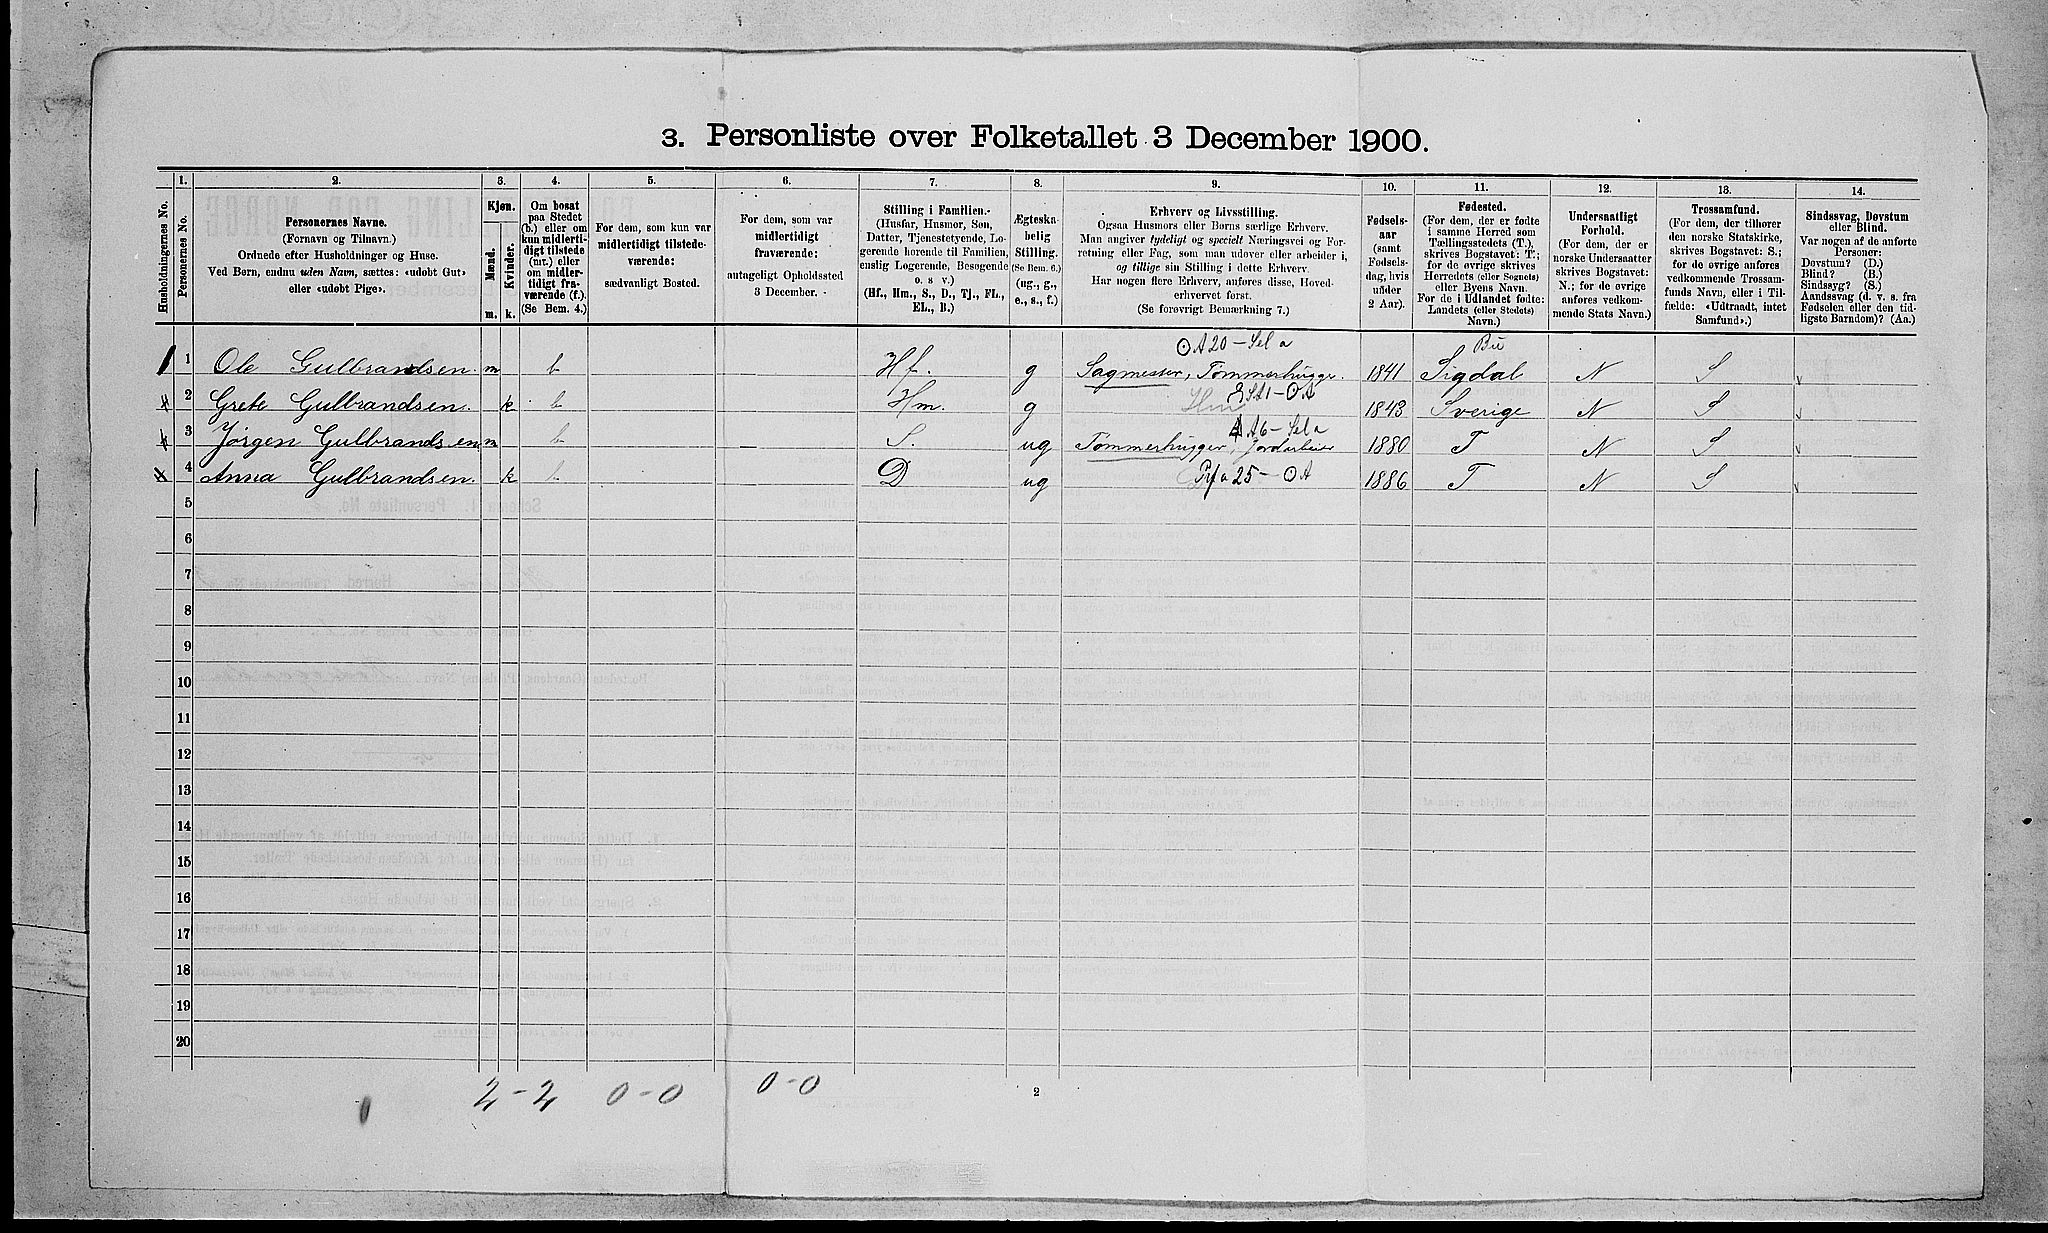 3. Personliste over Folketallet 3 December 1900.
1. 2. 3. 4. 5. 6. 7. 8. 9. 10. 11. 12. 13. 14.
Husholdningernes No.
Personernes No.
Personernes Navne.
(Fornavn og Tilnavn.)
Ordnede efter Husholdninger og Huse.
Ved Børn, endnu uden Navn, sættes: «udøbt Gut»
eller «udøbt Pige».
Kjøn.
Mænd. Kvinder.
m. k.
Om bosat
paa Stedet
(b.) eller om
kun midlerti-
digt tilstede
(mt.) eller
om midler-
tidigt fra-
værende (f.).
(Se Bem. 4.)
For dem, som kun var
midlertidigt tilstede-
værende:
sædvanligt Bosted.
For dem, som var
midlertidigt
fraværende:
antageligt Opholdssted
3 December.
Stilling i Familien.
(Husfar, Husmor, Søn,
Datter, Tjenestetyende, Lo-
gerende hørende til Familien,
enslig Logerende, Besøgende
o. s v.)
(Hf., Hm., S., D., Tj., FL.,
EL., B.)
Ægteska-
belig
Stilling.
(Se Bem. 6.)
(ug., g.,
e., s., f.)
Erhverv og Livsstilling.
Ogsaa Husmors eller Børns særlige Erhverv.
Man angiver tydeligt og specielt Næringsvei og For-
retning eller Fag, som man udover eller arbeider i,
og tillige sin Stilling i dette Erhverv.
Har nogen flere Erhverv, anføres disse, Hoved-
erhvervet først.
(Se forøvrigt Bemærkning 7.)
Fødsels-
aar
(samt
Fødsels-
dag, hvis
under
2 Aar).
Fødested.
(For dem, der er fødte
i samme Herred som
Tællingsstedets (T.),
skrives Bogstavet: T.;
for de øvrige skrives
Herredets (eller Sognets)
eller Byens Navn.
For de i Udlandet fødte:
Landets (eller Stedets)
Navn.)
Undersaatligt
Forhold.
(For dem, der er
norske Undersaatter
skrives Bogstavet:
N.; for de øvrige
anføres vedkom-
mende Stats Navn.)
Trossamfund.
(For dem, der tilhører
den norske Statskirke,
skrives Bogstavet: S.;
for de øvrige anføres
vedkommende Trossam-
funds Navn, eller i Til-
fælde: «Udtraadt, intet
Samfund».)
Sindssvag, Døvstum
eller Blind.
Var nogen af de anførte
Personer:
Døvstum? (D.)
Blind? (B.)
Sindssyg? (S.)
Aandssvag (d. v. s. fra
Fødselen eller den tid-
ligste Barndom)? (Aa.)
A20 - Sela Bu
1 1 Ole Gulbrandsen. m b Hf. g Sagmester, Tømmerhugger. 1841 Sigdal N S
2 Grete Gulbrandsen. k b Hm. g Hm 1843 Sverige N S
A6 - Sela
3 Jørgen Gulbrandsen m b S. ug Tømmerhugger, Jordarbeider 1880 T N S
4 Anna Gulbrandsen. k b D ug 25- 1886 T N S
5
6
7
8
9
10
11
12
13
14
15
16
17
18
19
20
2 - 2 0 - 0 0 - 0
2